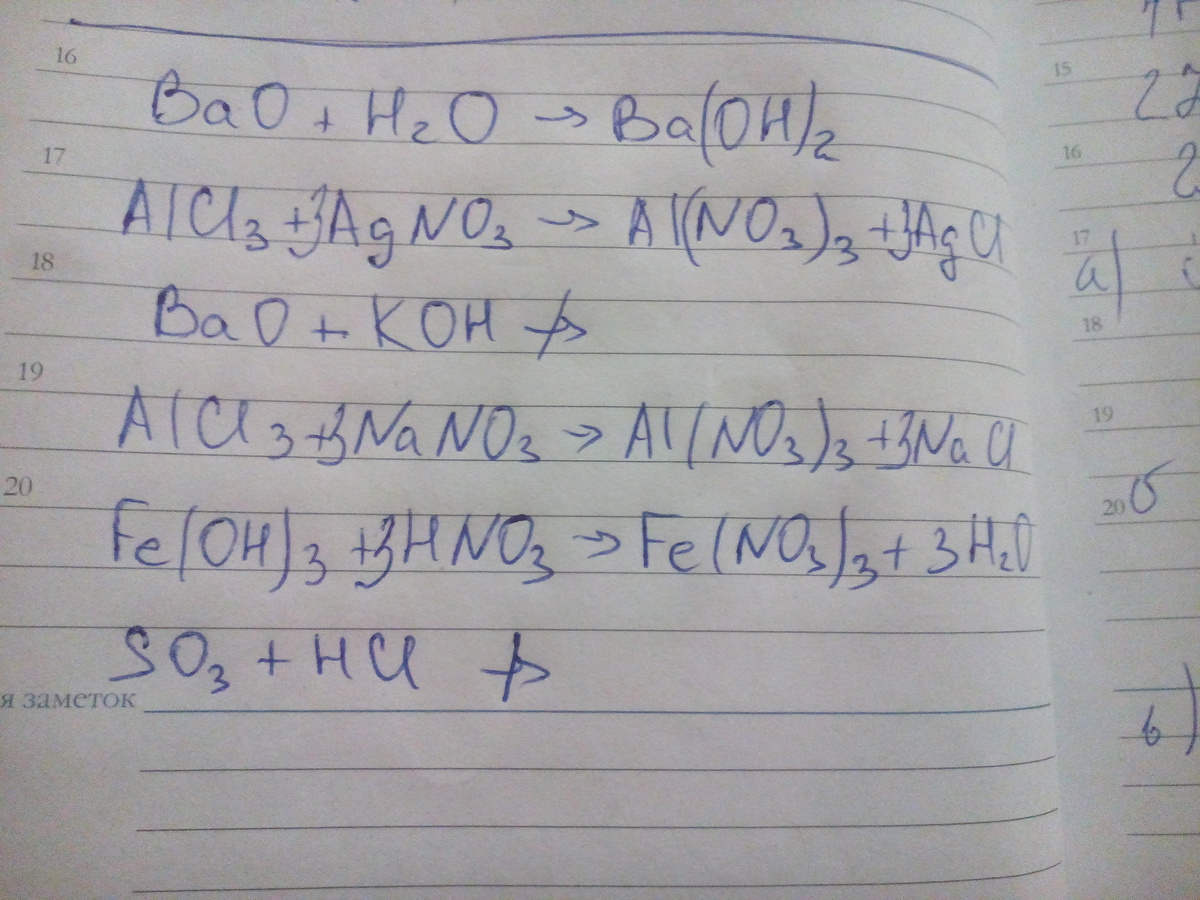 16
BaO + H₂O → Ba(OH)₂
17
AlCl₃ + 3AgNO₃ → Al(NO₃)₃ + 3AgCl
18
BaO + KOH ↛
19
AlCl₃ + 3NaNO₃ → Al(NO₃)₃ + 3NaCl
20
Fe(OH)₃ + 3HNO₃ → Fe(NO₃)₃ + 3H₂O
SO₃ + HCl ↛
я заметок
15
16
2
17
а)
18
19
20 б
в)